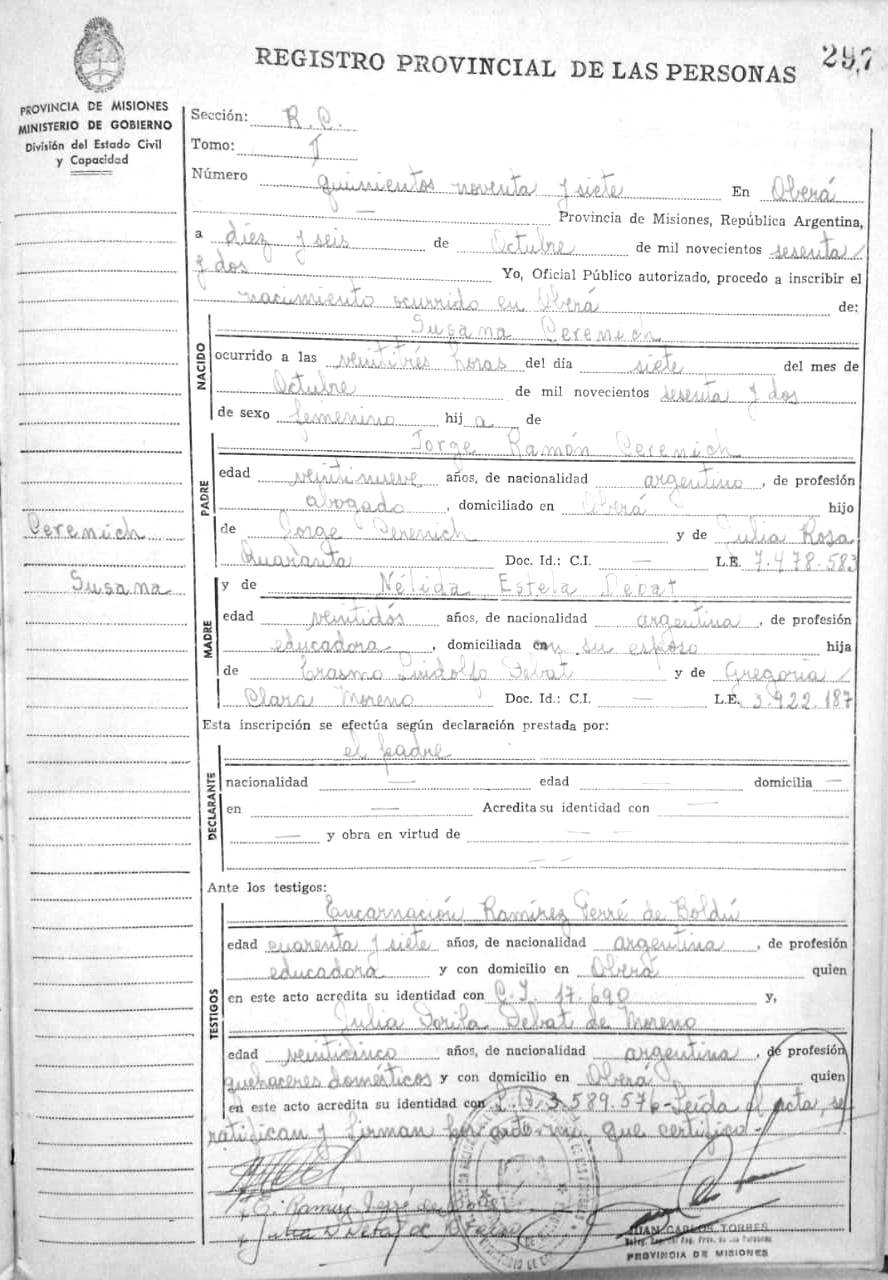 297
REGISTRO PROVINCIAL DE LAS PERSONAS
PROVINCIA DE MISIONES
MINISTERIO DE GOBIERNO
División del Estado Civil
y Capacidad
Sección: R. C.
Tomo: I
Número quinientos noventa y siete En Oberá
Provincia de Misiones, República Argentina,
a diez y seis de Octubre de mil novecientos sesenta /
y dos Yo, Oficial Público autorizado, procedo a inscribir el
nacimiento ocurrido en Oberá de:
Susana Cerenich
NACIDO
ocurrido a las veintitrés horas del día siete del mes de
Octubre de mil novecientos sesenta y dos
de sexo femenino hij a de
Jorge Ramón Cerenich
PADRE
edad veintinueve años, de nacionalidad argentino, de profesión
abogado, domiciliado en Oberá hijo
de Jorge Cerenich y de Julia Rosa
Quaranta Doc. Id.: C.I. — L.E. 7.478.583
Cerenich
Susana
MADRE
y de Nélida Estela Debat
edad veintidós años, de nacionalidad argentina, de profesión
educadora, domiciliada en su esposo hija
de Erasmo Debat y de Gregoria /
Clara Moreno Doc. Id.: C.I. — L.E. 3.922.187
Esta inscripción se efectúa según declaración prestada por:
el padre
DECLARANTE
nacionalidad — edad — domicilia —
en — Acredita su identidad con —
— y obra en virtud de — —
— —
Ante los testigos:
TESTIGOS
Encarnación Ramírez Ferré de Boldú
edad cuarenta y siete años, de nacionalidad argentina, de profesión
educadora y con domicilio en Oberá quien
en este acto acredita su identidad con C.I. 17.690 y,
Julia Dorila Debat de Moreno
edad veinticinco años, de nacionalidad argentina, de profesión
quehaceres domésticos y con domicilio en Oberá quien
en este acto acredita su identidad con 3.589.576 - Leída el acta, se
ratifican y firman por ante mí que certifico.-
JUAN CARLOS TORRES
PROVINCIA DE MISIONES